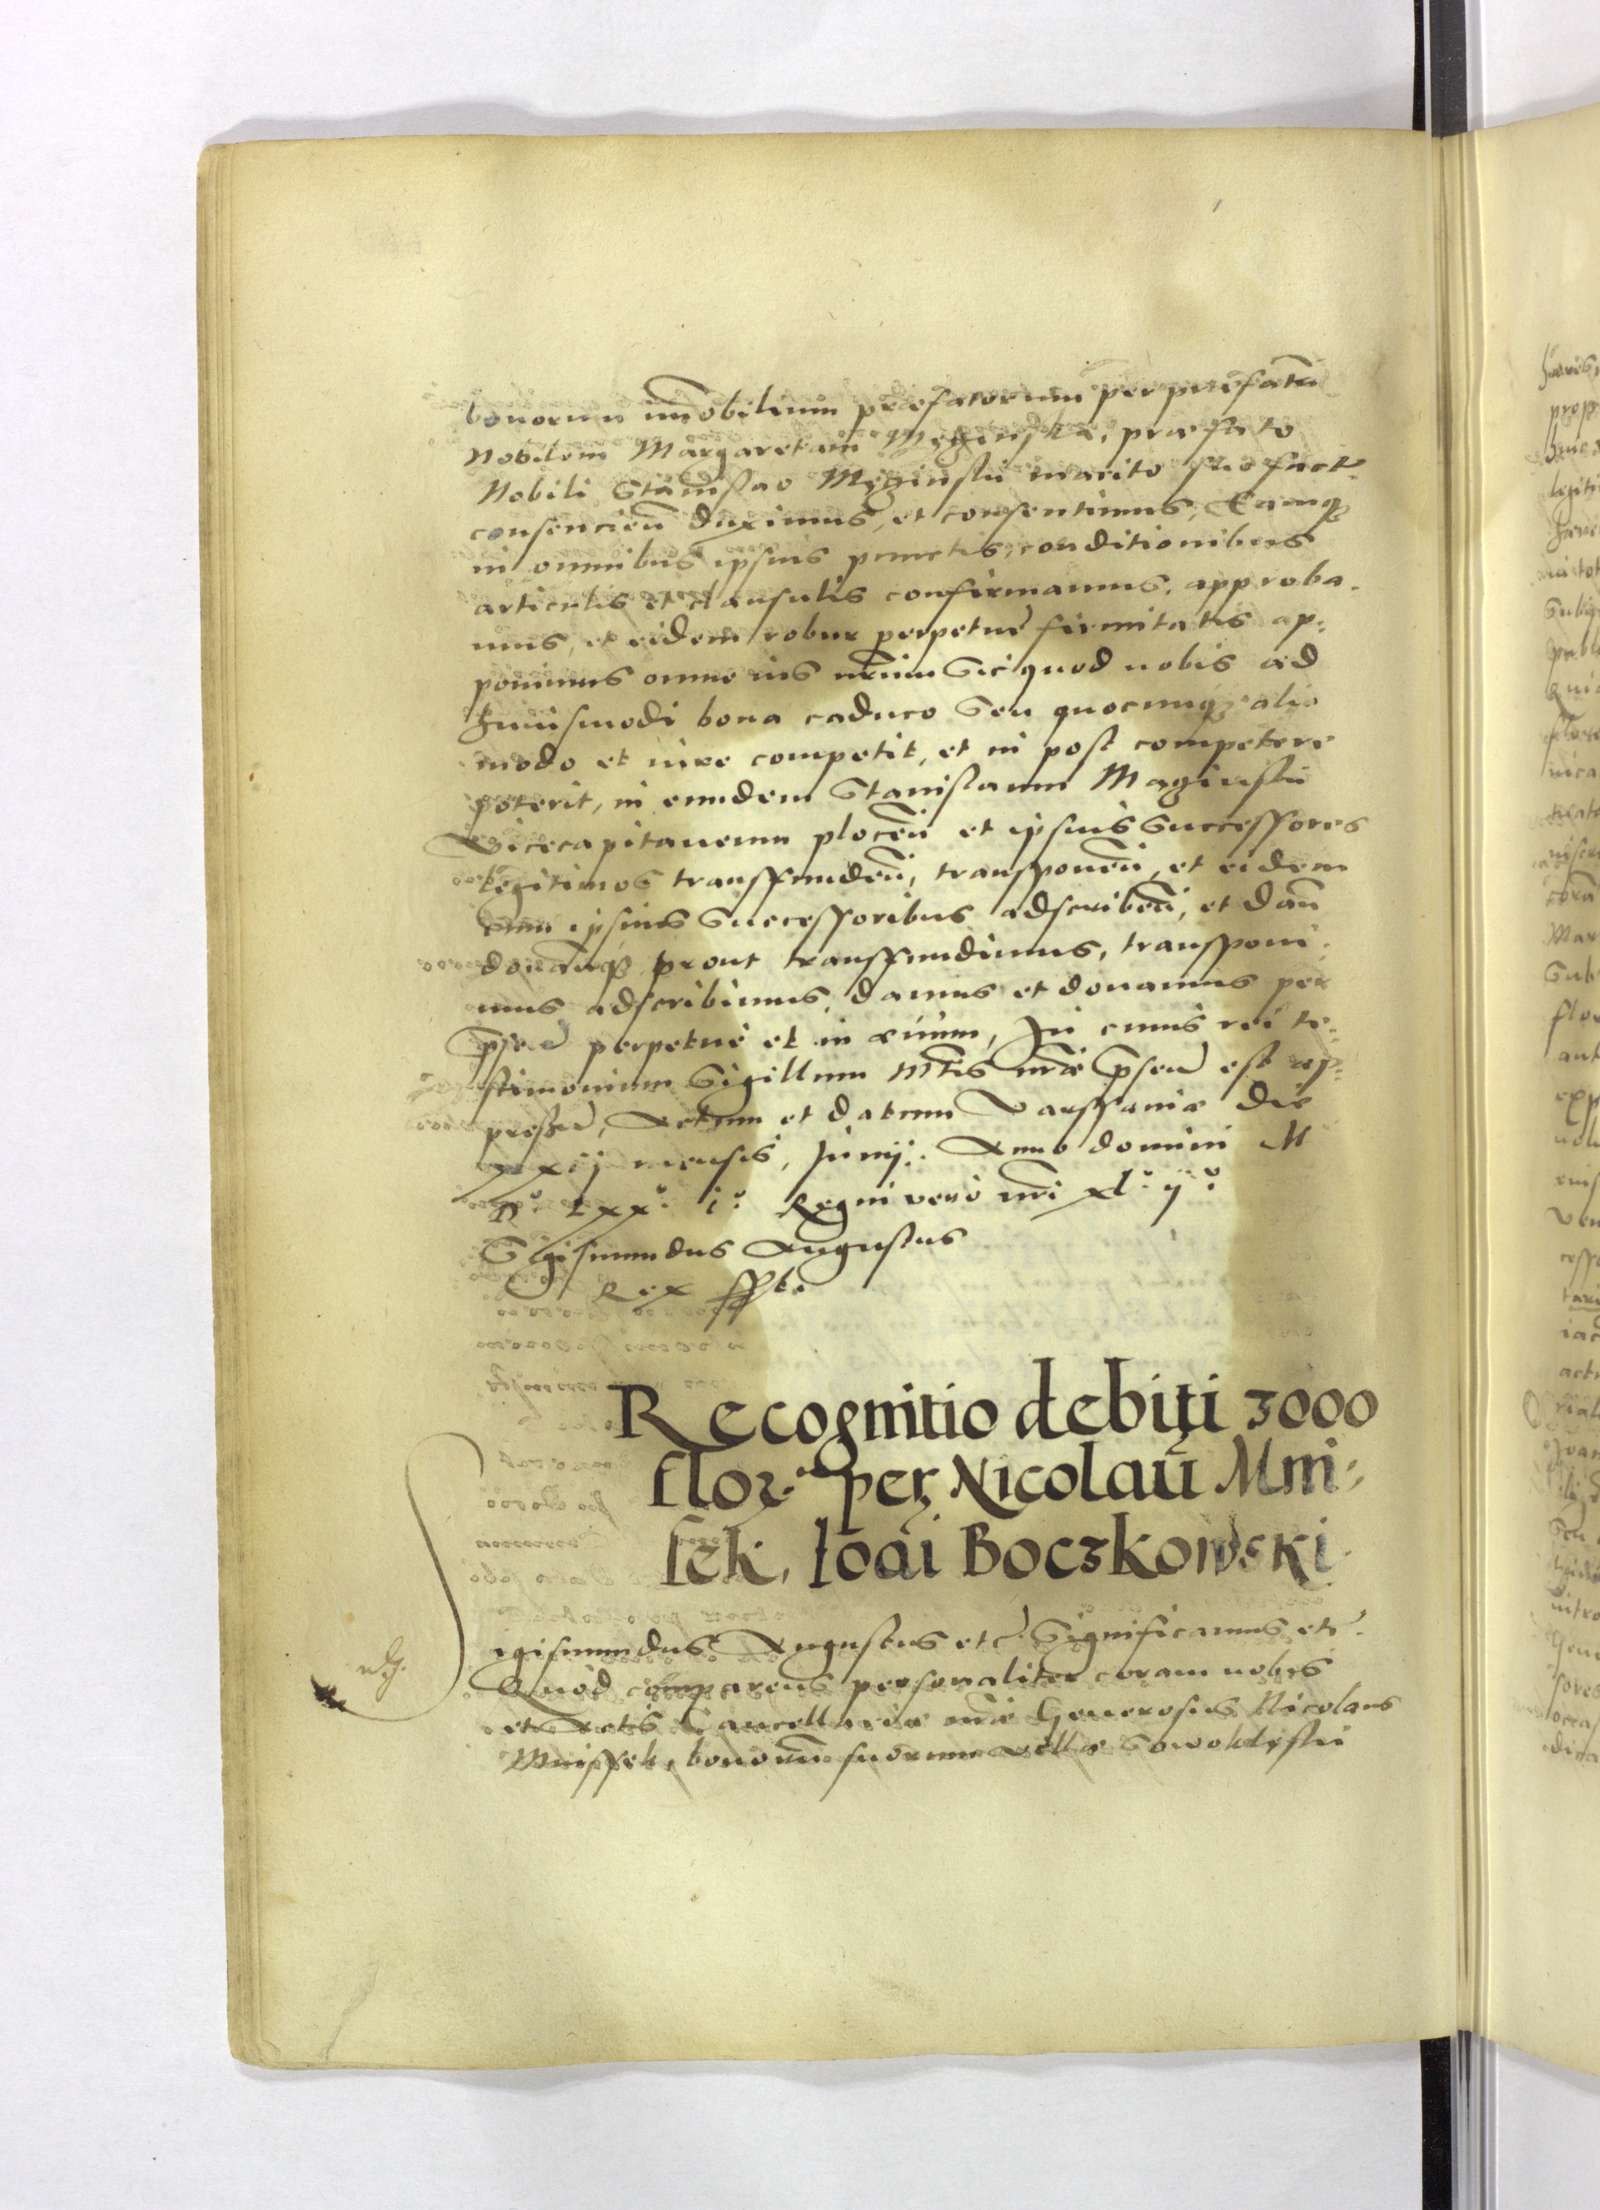 bonorum im̄obilium præfatorum per præfatā
Nobilem Margaretam Męginska, præfato
Nobili Stanislao Męginski marito suo fact.
consencień duximus, et consentimus, Eamq₃
in omnibus ipsius punctis, conditionibus
articulis et clausulis confirmamus, approba-
mus, et eidem robur perpetuè firmitatis ap-
ponimus omne ius nr̄um sic quod nobis ad
huiusmodi bona caduco seu quocunq₃ alio
modo et iure competit, et in post competere
poterit, in eundem Stanislaum Maginski
Vicecapitaneum plocen̄ et ipsius Successores
legitimos transffunden̄, transponen̄, et eidem
cum ipsius Successoribus adscriben̄, et dan̄
donanq₃ prout transffundimus, transponi-
mus adscribimus, damus et donamus per
pręsen̄ perpetuè et in æuum, In cuius rei te-
stimonium Sigillum Mtis nrae pręsen̄ est ap-
press̄, Actum et datum Varssauiæ die
xxij mensis, Junij. Anno domini M
D° Lxx° i° Regni vero nr̄i xl° ij°
Sigismundus Augustus
Rex sspt.
Recognitio debiti 3000
flor. per Nicolaū Mni-
sek, Ioāi Boczkowski
Sigismundus Augustus etc. Significamus etc.
Quod comparens personaliter coram nobis
et Actis Cancellariæ nr̄æ Generosus Nicolaus
Mnissek, bonorum suorum